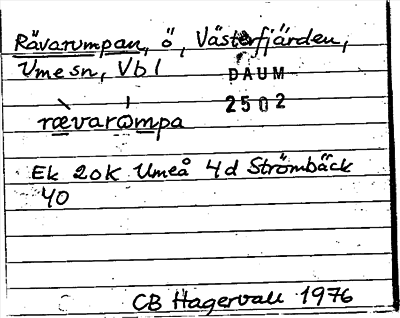 Rävarumpan, ö, Västerfjärden,
Umesn, Vbl
DAUM
2502
rævarωmpa
Ek 20K Umeå 4d Strömbäck
40
CB Hagervall 1976